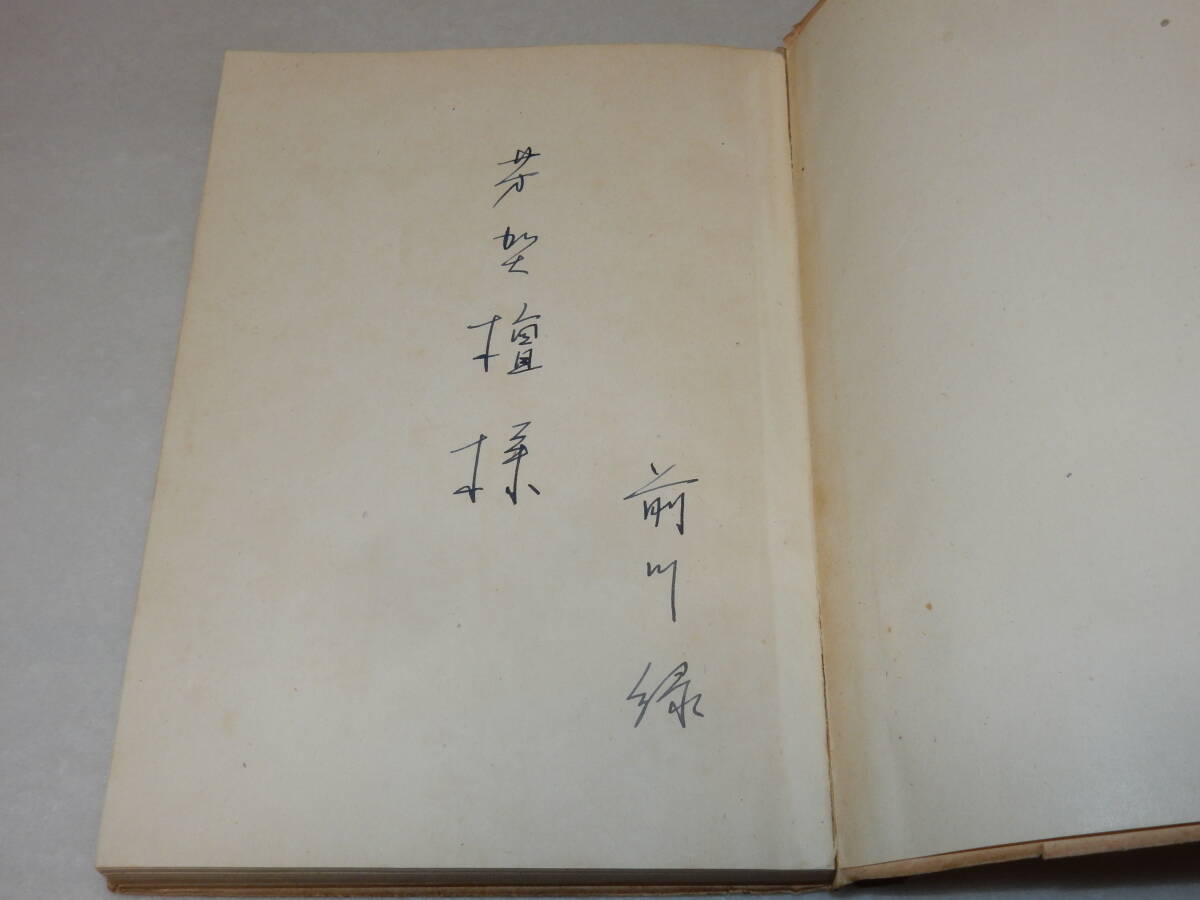 前川緑
芳賀檀様